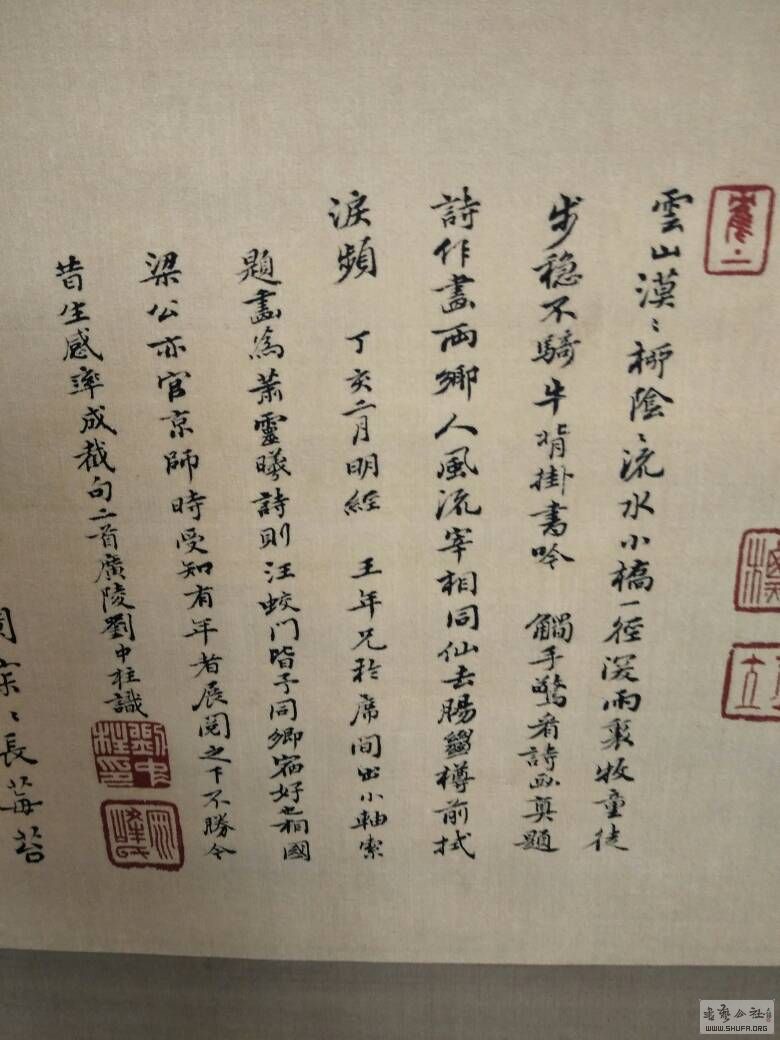 雲山漠〻柳陰〻流水小橋一徑深雨裏牧童徒
步穩不騎牛背掛書吟 觸手驚看詩畫真題
詩作畫兩鄉人風流宰相同仙去腸斷樽前拭
淚頻 丁亥二月明經 王年兄於席間出小軸索
題畫為蕭靈曦詩則汪蛟門皆予同鄉宿好也相國
梁公亦官京師時受知有年者展閱之下不勝今
昔生感率成截句二首廣陵劉中柱識
劉中柱印
長莓苔
書藝公社
WWW.SHUFA.ORG